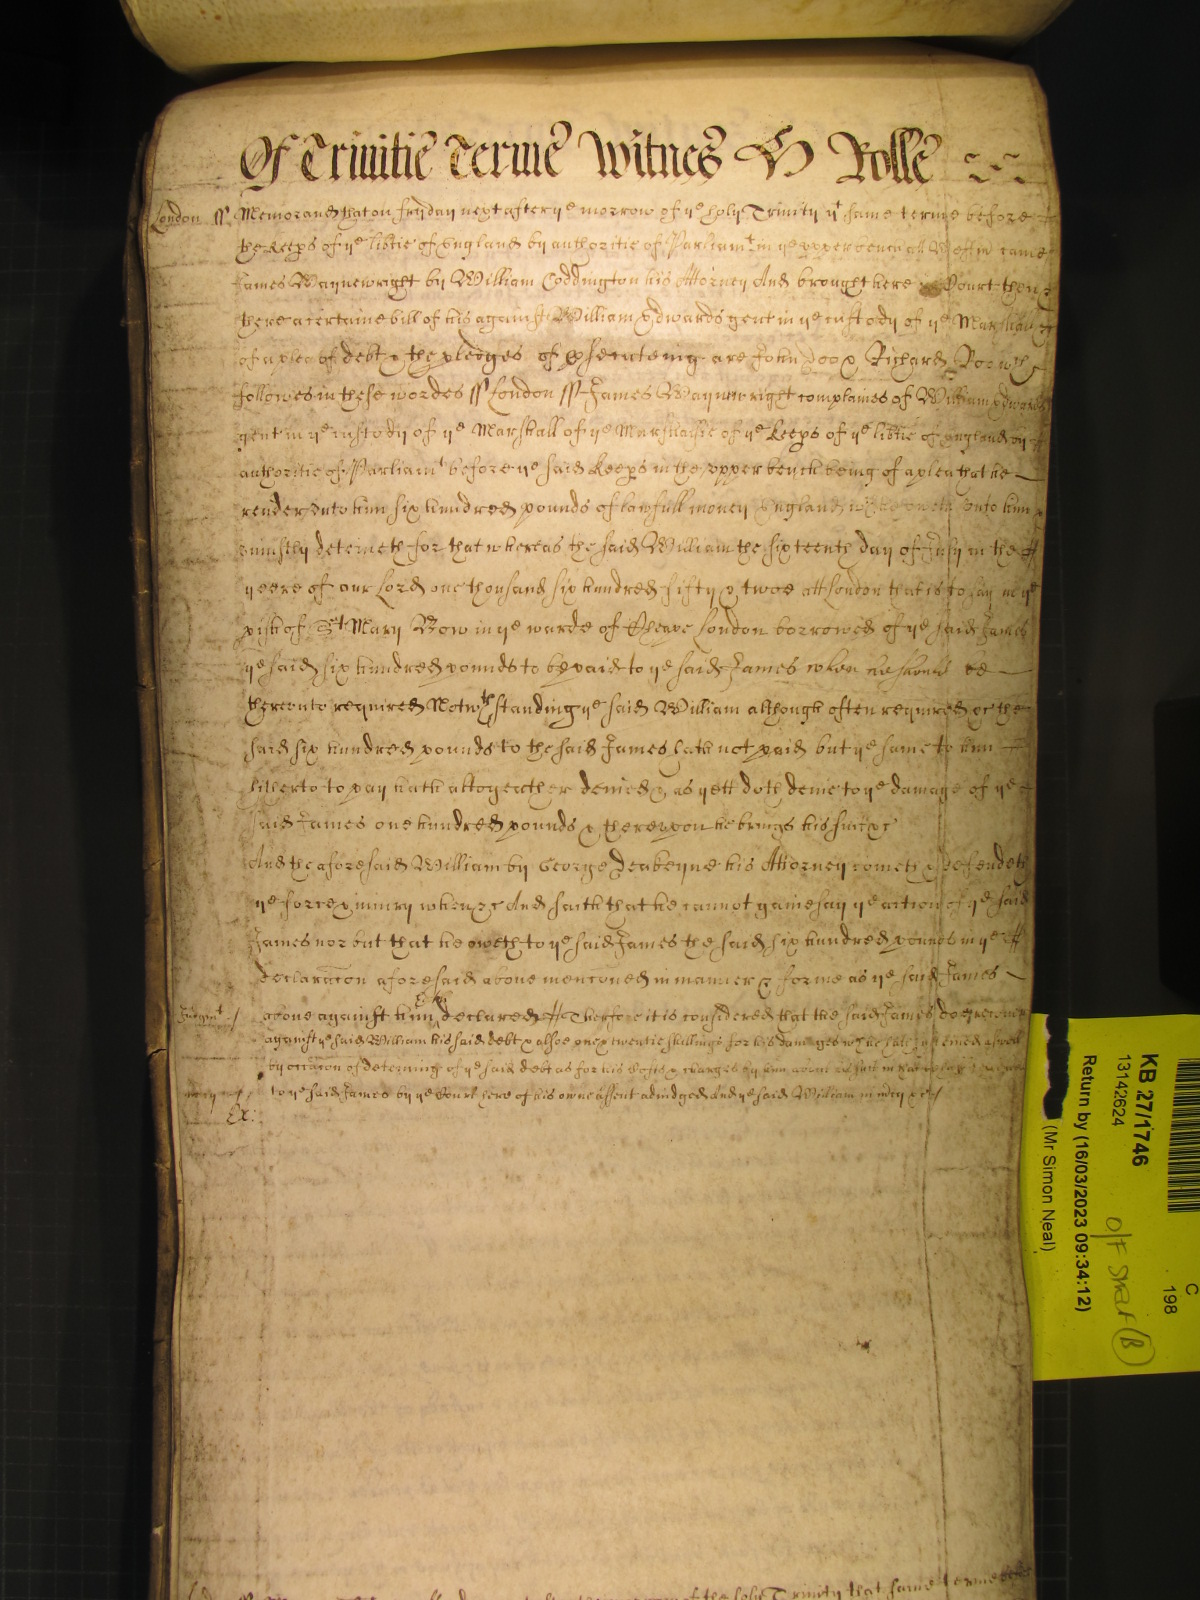 Of Trinitie Terme Witnes H Rolle
London ss Memorand that on fryday next after ye morrow of ye holy Trinity yt same terme before
the Keeps of ye libtie of England by authoritie of Parliamt in ye upper bench att Westm came
James Waynewright by William Coddington his Attorney And brought here Court then
there a certaine bill of his against William Edwards gent in ye custody of ye Marshall
of a plea of debt & the pledges of psecuteing are John Doo & Richard Roo wch
followes in these wordes ss London ss James Waynewright complaines of William Edwards
gent in ye custody of ye Marshall of ye Marshalsie of ye Keeps of ye libtie of England by
authoritie of Parliamt before ye said Keeps in the upper bench being of a plea that he
render unto him six hundred pounds of lawfull money England oweth unto him
uniustly deteineth for that whereas the said William the sixteenth day of July in the
yeere of our Lord one thousand six hundred fifty & twoe att London that is to say in ye
pish of St Mary Bow in ye warde of Cheape London borrowed of ye said James
ye said six hundred pounds to be paid to ye said James when he should be
thereunto required Notwthstanding ye said William although often required &c the
said six hundred pounds to the said James hath not paid but ye same to him
hitherto to pay hath altogeather denied & as yett doth denie to ye damage of ye
said James one hundred pounds & thereupon he brings his suit &c
And the aforesaid William by George Deakeyne his Attorney cometh & defendeth
ye force & iniury when &c And saith that he cannot gainesay ye action of ye said
James nor but that he oweth to ye said James the said six hundred pounds in ye
declaracon aforesaid above menconed in manner & forme as ye said James
above against him declared Therfore it is considered that the said James doe recover
Judgmt
against ye said William his said debt & alsoe twentie shillings for his damages wch he hath susteined aswell
by occasion of deteining of ye said debt as for his Costs & charges by him about his suit in that
to ye said James by ye Court here of his owne assent adiudged And ye said William in mcy &c
mcy
Ex:
of the holy Trinity that same terme before
KB 27/1746
13142624
Return by (16/03/2023 09:34:12)
(Mr Simon Neal)
C
198
B